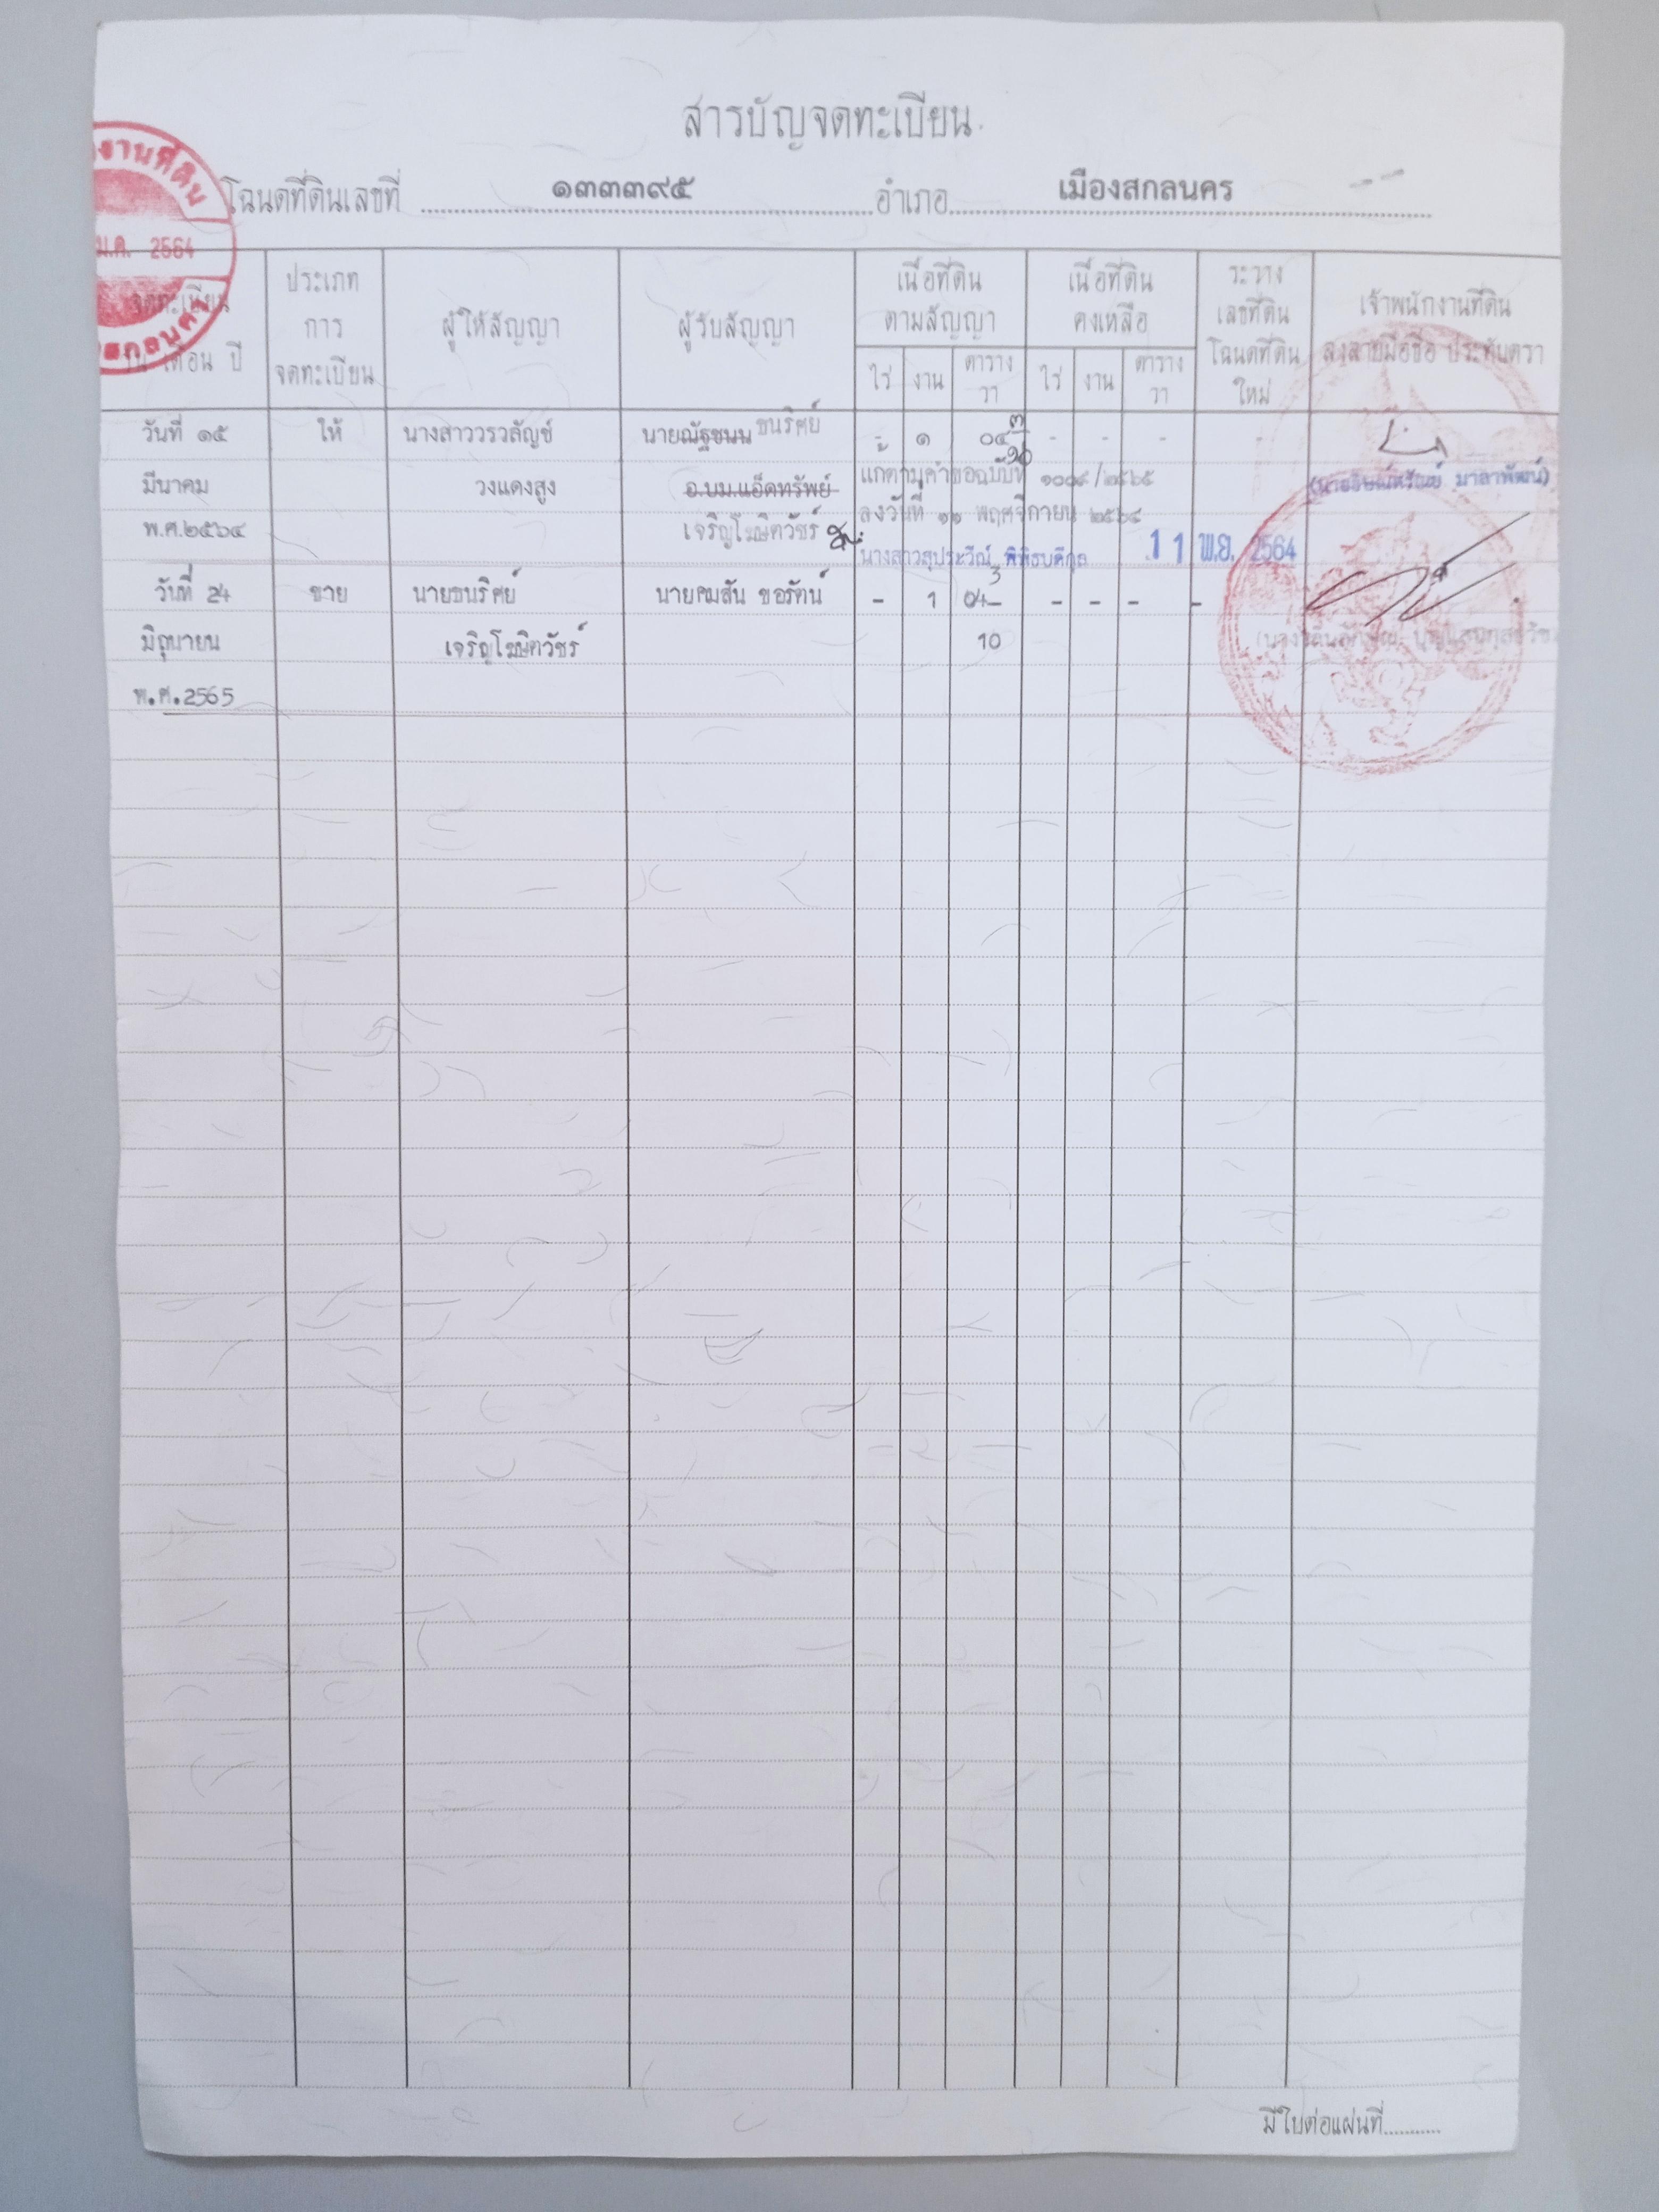 สารบัญจดทะเบียน
โฉนดที่ดินเลขที่ ๑๓๓๓๙๕ อำเภอ เมืองสกลนคร
งานที่ดิน
ม.ค. 2564
สกลนคร
จดทะเบียน
เดือน ปี
ประเภท
การ
จดทะเบียน
ผู้ให้สัญญา
ผู้รับสัญญา
เนื้อที่ดิน
ตามสัญญา
ไร่ งาน ตาราง
วา
เนื้อที่ดิน
คงเหลือ
ไร่ งาน ตาราง
วา
ระวาง
เลขที่ดิน
โฉนดที่ดิน
ใหม่
เจ้าพนักงานที่ดิน
ลงลายมือชื่อ ประทับตรา
วันที่ ๑๕ ให้ นางสาววรวลัญช์ นายณัฐชนน ธนริศย์ - ๑ ๐๔ ๓ - - - -
๑๐
มีนาคม วงแดงสูง อ.บม.แอ็ดทรัพย์ แก้ตามคำขอฉบับที่ ๑๐๐๘/๒๕๖๕
พ.ศ.๒๕๖๔ เจริญโฆษิตวัชร์ ลงวันที่ ๑๑ พฤศจิกายน ๒๕๖๔
นางสาวสุประวีณ์ 11 พ.ย. 2564
3
วันที่ 24 ขาย นายธนริศย์ นายคมสัน ขอรัตน์ - 1 04 - - - -
มิถุนายน เจริญโฆษิตวัชร์ 10
พ.ศ.2565
มีใบต่อแผ่นที่